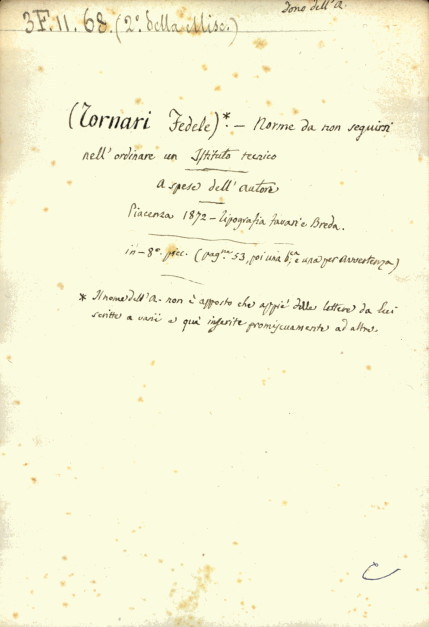 Dono dell'A.
3F.11.68. (2º della Misc.)
(Tornari Fedele)*. — Norme da non seguirsi
nell'ordinare un Istituto tecnico
A spese dell'autore
Piacenza 1872 – tipografia Favari e Breda.
in-8º. picc. (pagne 53, poi una b;ca e una per Avvertenza)
* Il nome dell'A. non è apposto che appiè delle lettere da lui
scritte a varii e quà inserite promiscuamente ad altre.